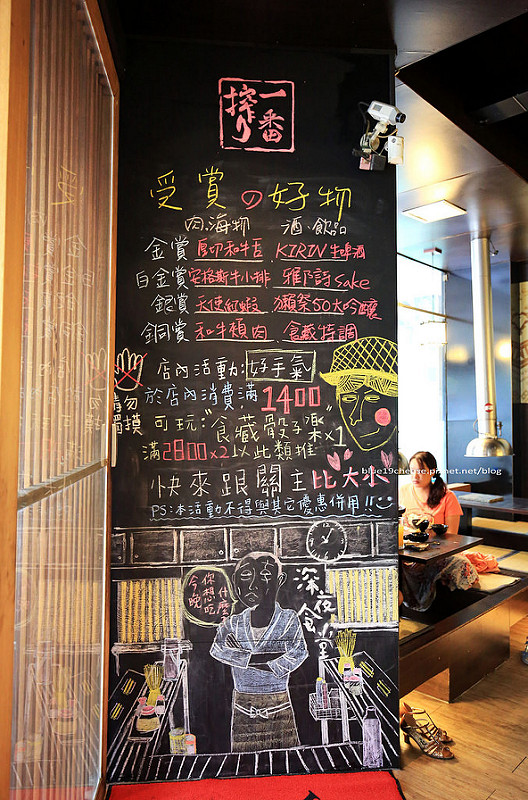 一番
搾り
受賞の好物
肉.海物 酒.飲品
金賞 厚切和牛舌 KIRIN生啤酒
白金賞 安格斯牛小排 雅乃詩 Sake
銀賞 天使紅蝦 獺祭50大吟釀
銅賞 和牛頰肉 食藏特調
請勿觸摸
店內活動:好手氣
於店內消費滿1400
可玩:"食藏骰子樂x1
滿2800x2以此類推
快來跟關主比大小
PS:本活動不得與其它優惠併用!!
blue19cheese.pixnet.net/blog
今晚你想吃什麼?
深夜食堂